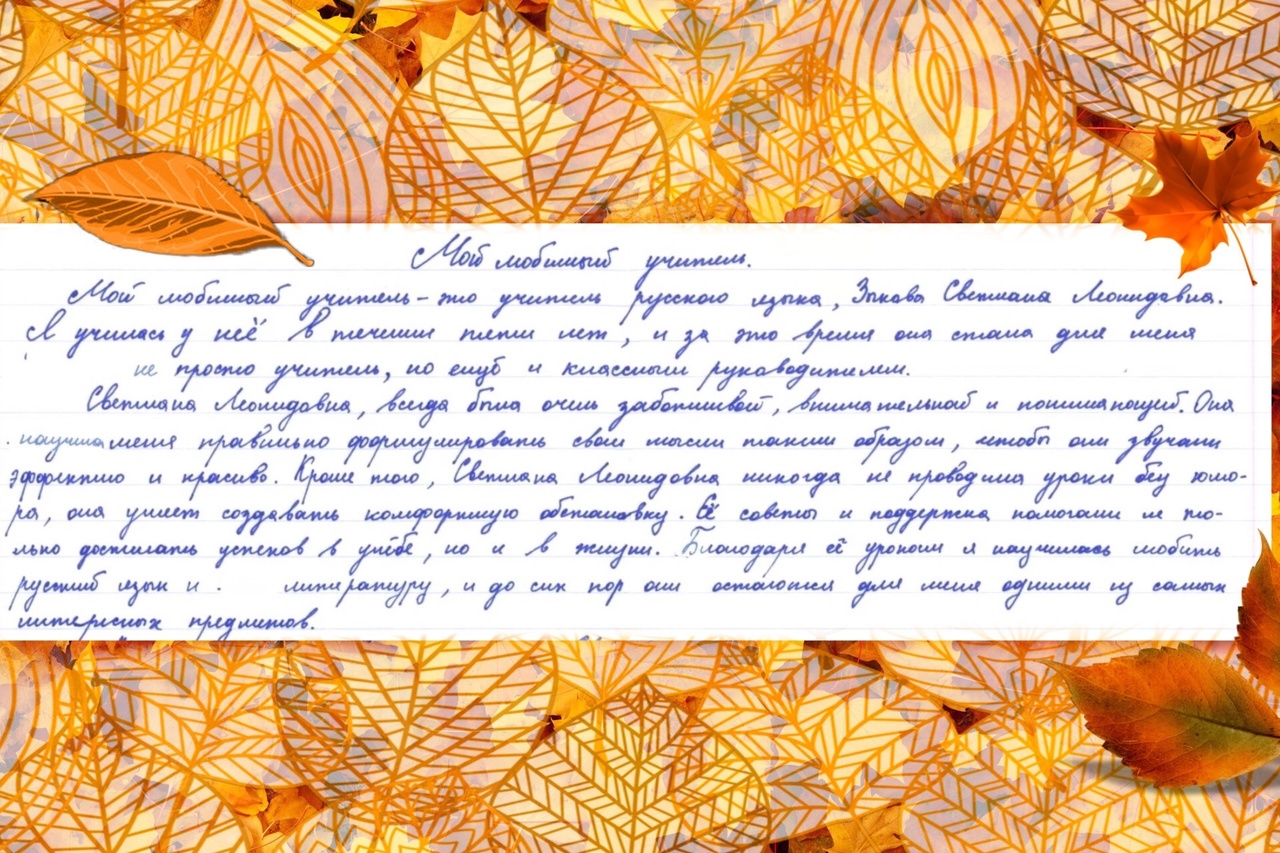 Мой любимый учитель.
Мой любимый учитель - это учитель русского языка, Зыкова Светлана Леонидовна.
Я училась у неё в течении пяти лет, и за это время она стала для меня
не просто учитель, но ещё и классным руководителем.
Светлана Леонидовна, всегда была очень заботливой, внимательной и понимающей. Она
научила меня правильно формулировать свои мысли таким образом, чтобы они звучали
эффектно и красиво. Кроме того, Светлана Леонидовна никогда не проводила уроки без юмо-
ра, она умеет создавать комфортную обстановку. Её советы и поддержка помогали не то-
лько достигать успехов в учёбе, но и в жизни. Благодаря её урокам я научилась любить
русский язык и литературу, и до сих пор они остаются для меня одними из самых
интересных предметов.